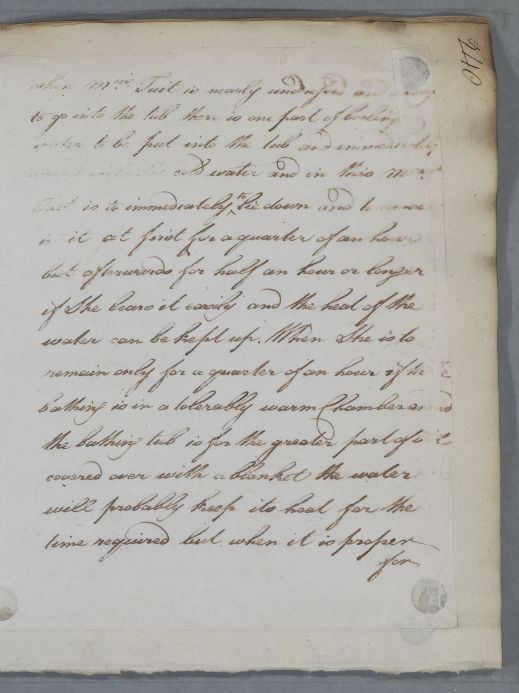 240
when Mrs. Tait is nearly undressed and ready
to go into the tub there is one part of boiling
water to be put into the tub and immediately
cold water and in this Mrs.
Tait is to immediately to lie down and to remain
in it at first for a quarter of an hour
but afterwards for half an hour or longer
if She bears it easily and the heat of the
water can be kept up. When She is to
remain only for a quarter of an hour if the
bathing is in a tolerably warm Chamber and
the bathing tub is for the greater part of it
covered over with a blanket the water
will probably keep its heat for the
time required but when it is proper
for